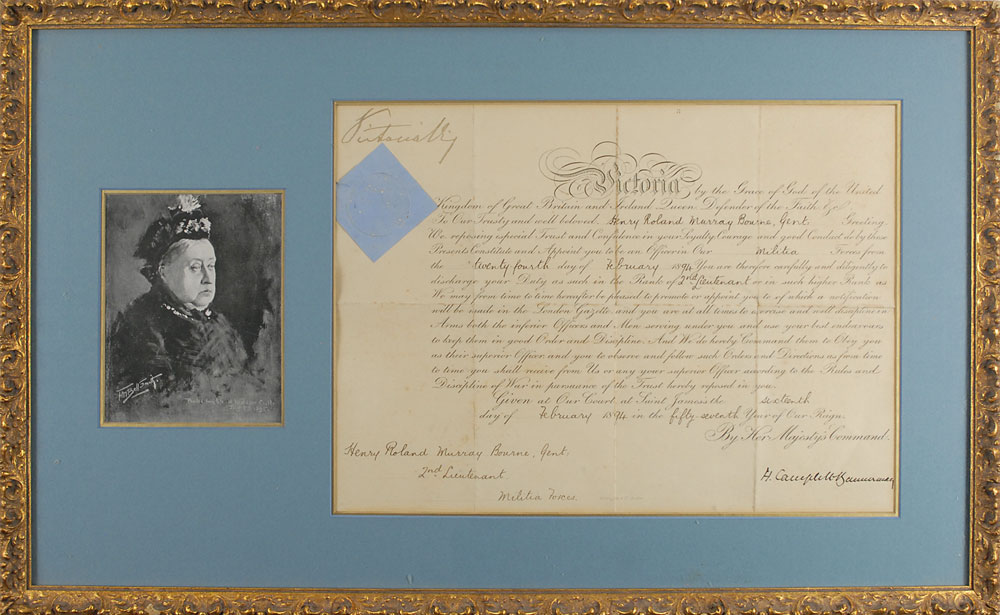 Victoria R I
Victoria by the Grace of God of the United
Kingdom of Great Britain and Ireland Queen Defender of the Faith &c
To Our Trusty and well beloved, Henry Roland Murray Bourne, Gent Greeting
We reposing especial Trust and Confidence in your Loyalty Courage and good Conduct do by these
Presents Constitute and Appoint you to be an Officer in Our Militia Forces from
the twenty fourth day of February 1894 You are therefore carefully and diligently to
discharge your Duty as such in the Rank of 2nd Lieutenant or in such higher Rank as
We may from time to time hereafter be pleased to promote or appoint you to of which a notification
will be made in the London Gazette and you are at all times to exercise and well discipline in
Arms both the inferior Officers and Men serving under you and use your best endeavours
to keep them in good Order and Discipline. And We do hereby Command them to Obey you
as their superior Officer and you to observe and follow such Orders and Directions as from time
to time you shall receive from Us or any your superior Officer according to the Rules and
Discipline of War in pursuance of the Trust hereby reposed in you.
Given at Our Court at Saint James's the sixteenth
day of February 1894 in the fifty seventh Year of Our Reign.
By Her Majesty's Command.
Henry Roland Murray Bourne, Gent.
2nd Lieutenant
Militia Forces
H. Campbell-Bannerman